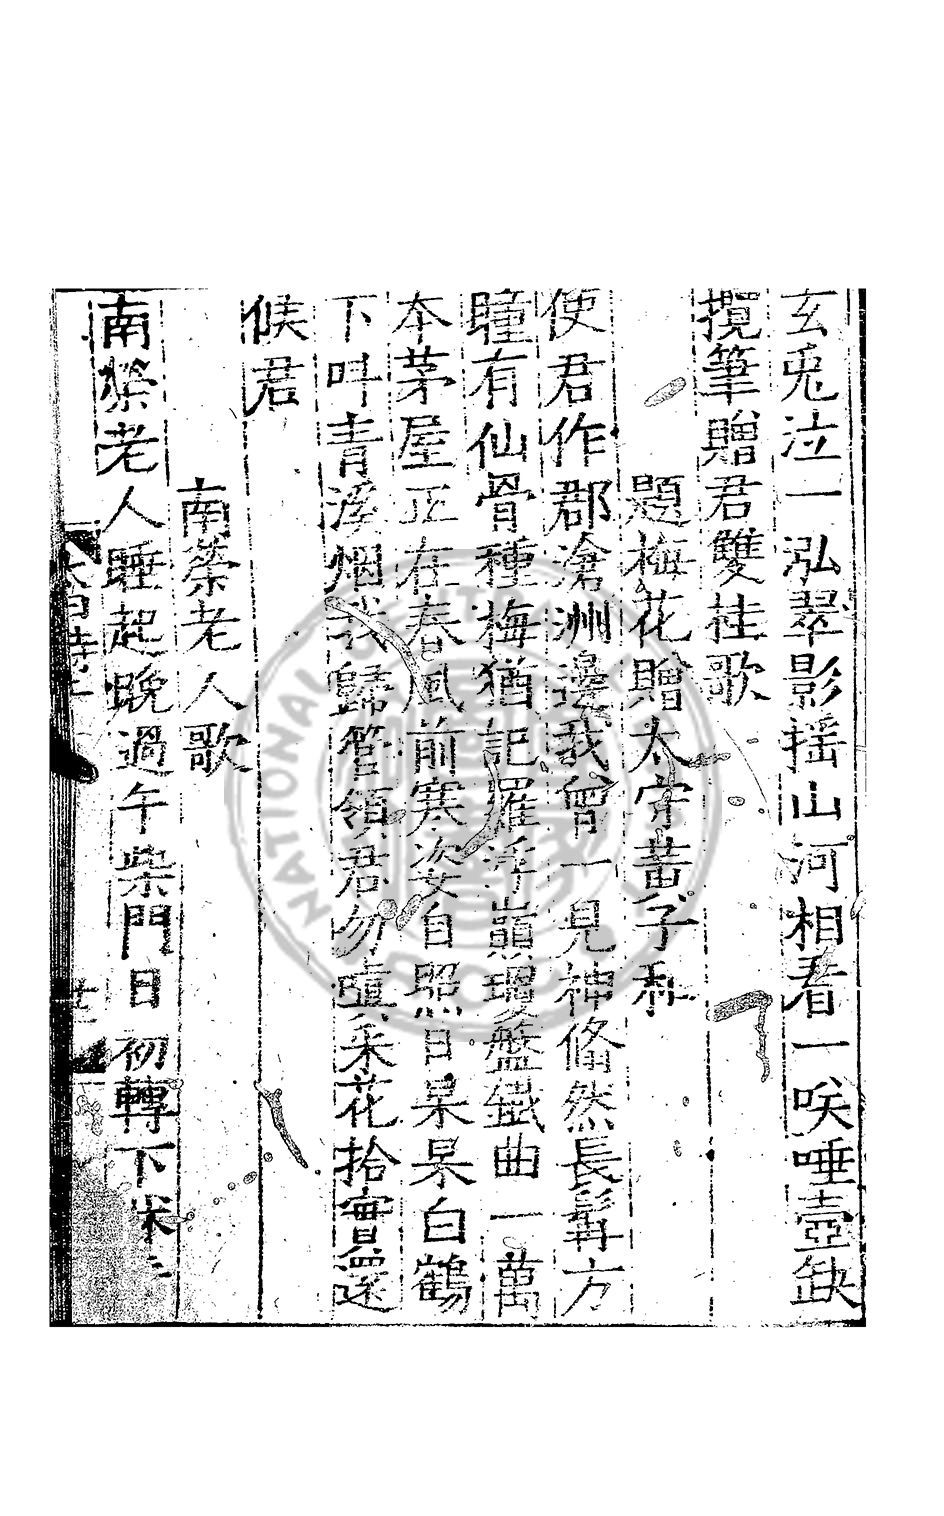 玄兎泣一泓翠影揺山河相看一咲唾壺缺
攬筆贈君雙桂歌
題梅花贈太守黃子和
使君作郡滄洲邊我曾一見神翛然長髯方
瞳有仙骨種梅猶記羅浮巔瓊盤鐵曲一萬
本茅屋正在春風前寒姿自照日杲杲白鶴
下呌青溪烟我歸管領君勿嗔采花拾實盍還
候君
南榮老人歌
南榮老人睡起晚過午柴門日初轉下
NATIONAL CENTRAL